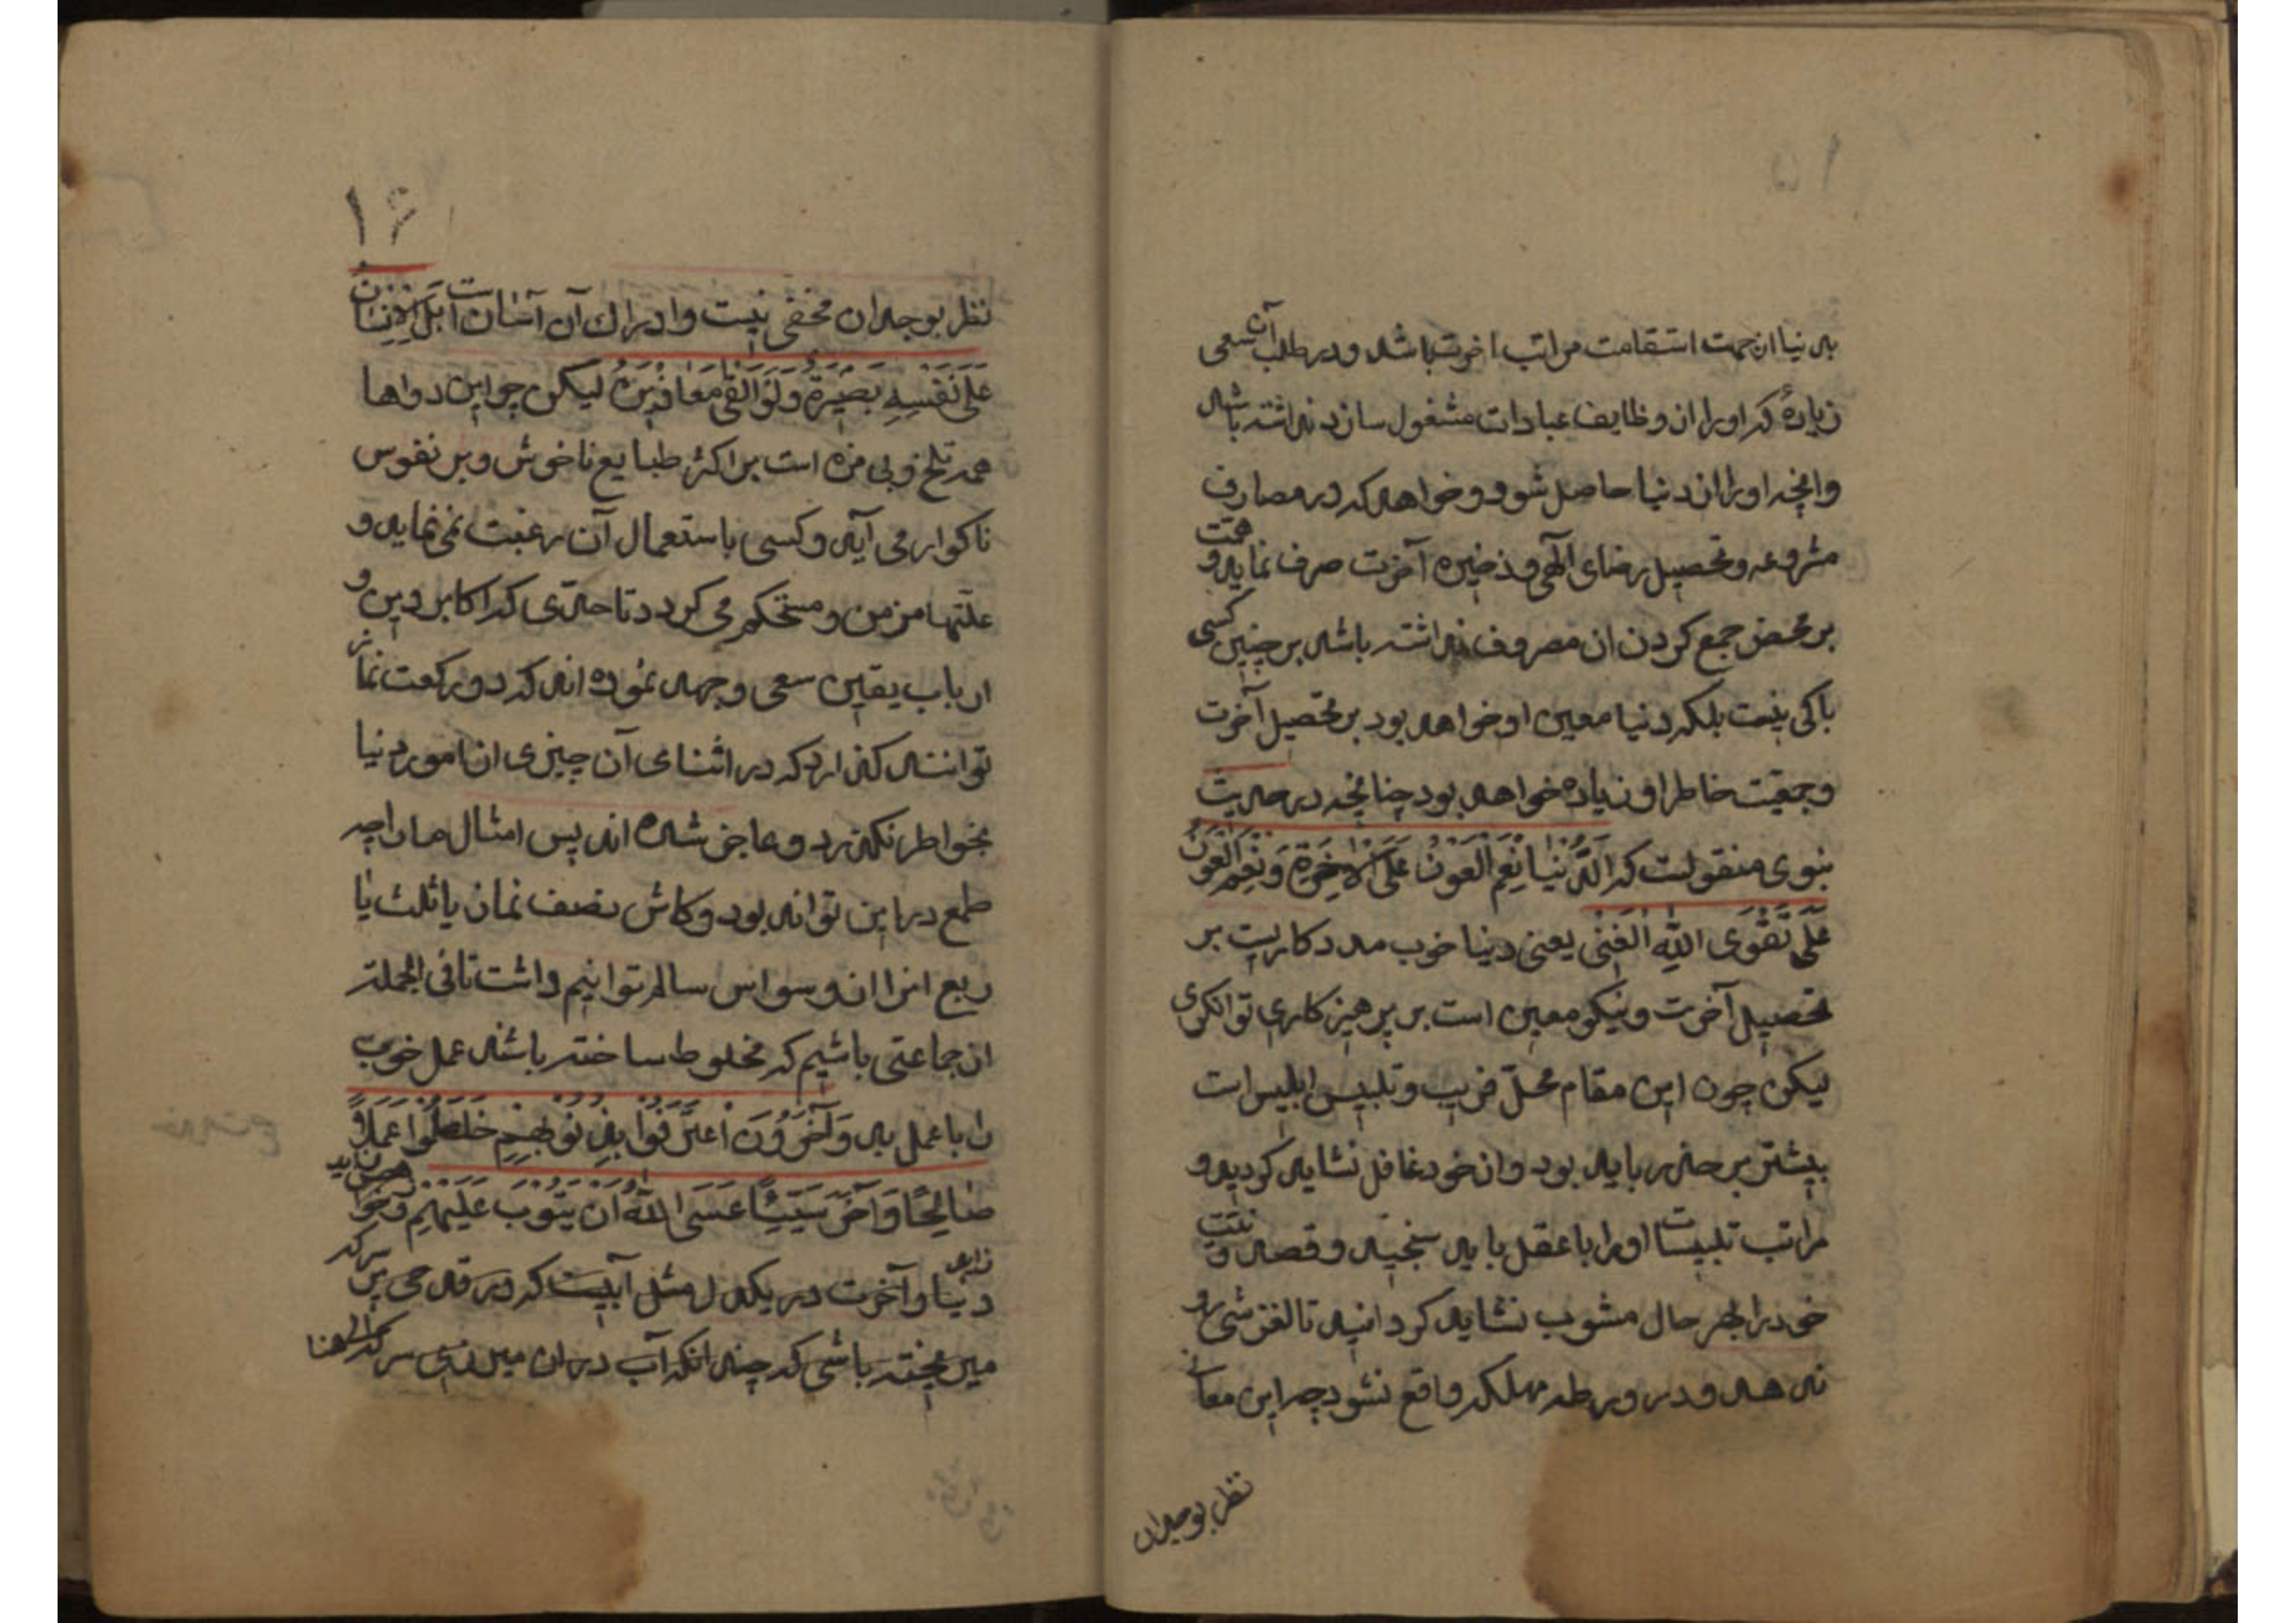 بدنیا از جهت استقامت مراتب اخرت باشد و در طلب آن سعی
زیادهٔ که او را از وظایف عبادات مشغول سازد نداشته باشد
وانچه او را از دنیا حاصل شود و خواهد که در مصارف
مشروعه و تحصیل رضای الهی و ذخیره آخرت صرف نماید و همت
بر محض جمع کردن ان مصروف نداشته باشد بر چنین کسی
باکی نیست بلکه دنیا معین او خواهد بود بر تحصیل آخرت
و جمعیت خاطر او زیاده خواهد بود چنانچه در حدیث
نبوی منقولست که اَلدُّنْیا نِعْمَ الْعَوْنُ عَلَی الاخِرَةِ وَ نِعْمَ الْعَوْنُ
عَلی تَقْوَی اللّهِ الْغِنی یعنی دنیا خوب مدد کاریست بر
تحصیل آخرت و نیکو معین است بر پرهیز کاری توانکری
لیکن چون این مقام محلّ فریب و تلبیس ابلیس است
بیشتر بر حذر باید بود و از خود غافل نشاید کردید و
مراتب تلبیسات او را با عقل باید سنجید و قصد و نیت
خود را بهر حال مشوب نشاید کردانید تا لغزشی رو
ندهد و در ورطه مهلکه واقع نشود چه این معانی
نظر بوجدان
۱۶
نظر بوجدان مخفی نیست و ادراک آن آسان است بَلِ الْاِنْسانُ
عَلی نَفْسِهِ بَصیرَةٌ وَلَوْ اَلْقی مَعاذیرَهُ لیکن چو این دواها
همه تلخ و بی مزه است بر اکثر طبایع ناخوش و بر نفوس
ناکوار می آید و کسی باستعمال آن رغبت نمی نماید و
علّتها مزمن و مستحکم می کردد تا حدّی که اکابر دین و
ارباب یقین سعی و جهد نموده اند که دو رکعت نماز
توانند کذارد که در اثنای آن چیزی از امور دنیا
بخواطر نکذرد و عاجز شده اند پس امثال ما را چه
طمع در این تواند بود و کاش نصف نماز یا ثلث یا
ربع انرا از وسواس سالم توانیم داشت تا فی الجمله
از جماعتی باشیم که مخلوط ساخته باشند عمل خوب
را با عمل بد وَ آخَرُونَ اعْتَرَفُوا بِذُنُوبِهِمْ خَلَطُوا عَمَلاً
صالِحًا وَ آخَرَ سَیِّئًا عَسَی اللّهُ اَنْ یَتُوبَ عَلَیْهِمْ
دنیا و آخرت در یکدل مثل آبیست که در قدحی پر
میریخته باشی که چندانکه آب در ان میریزی سرکه